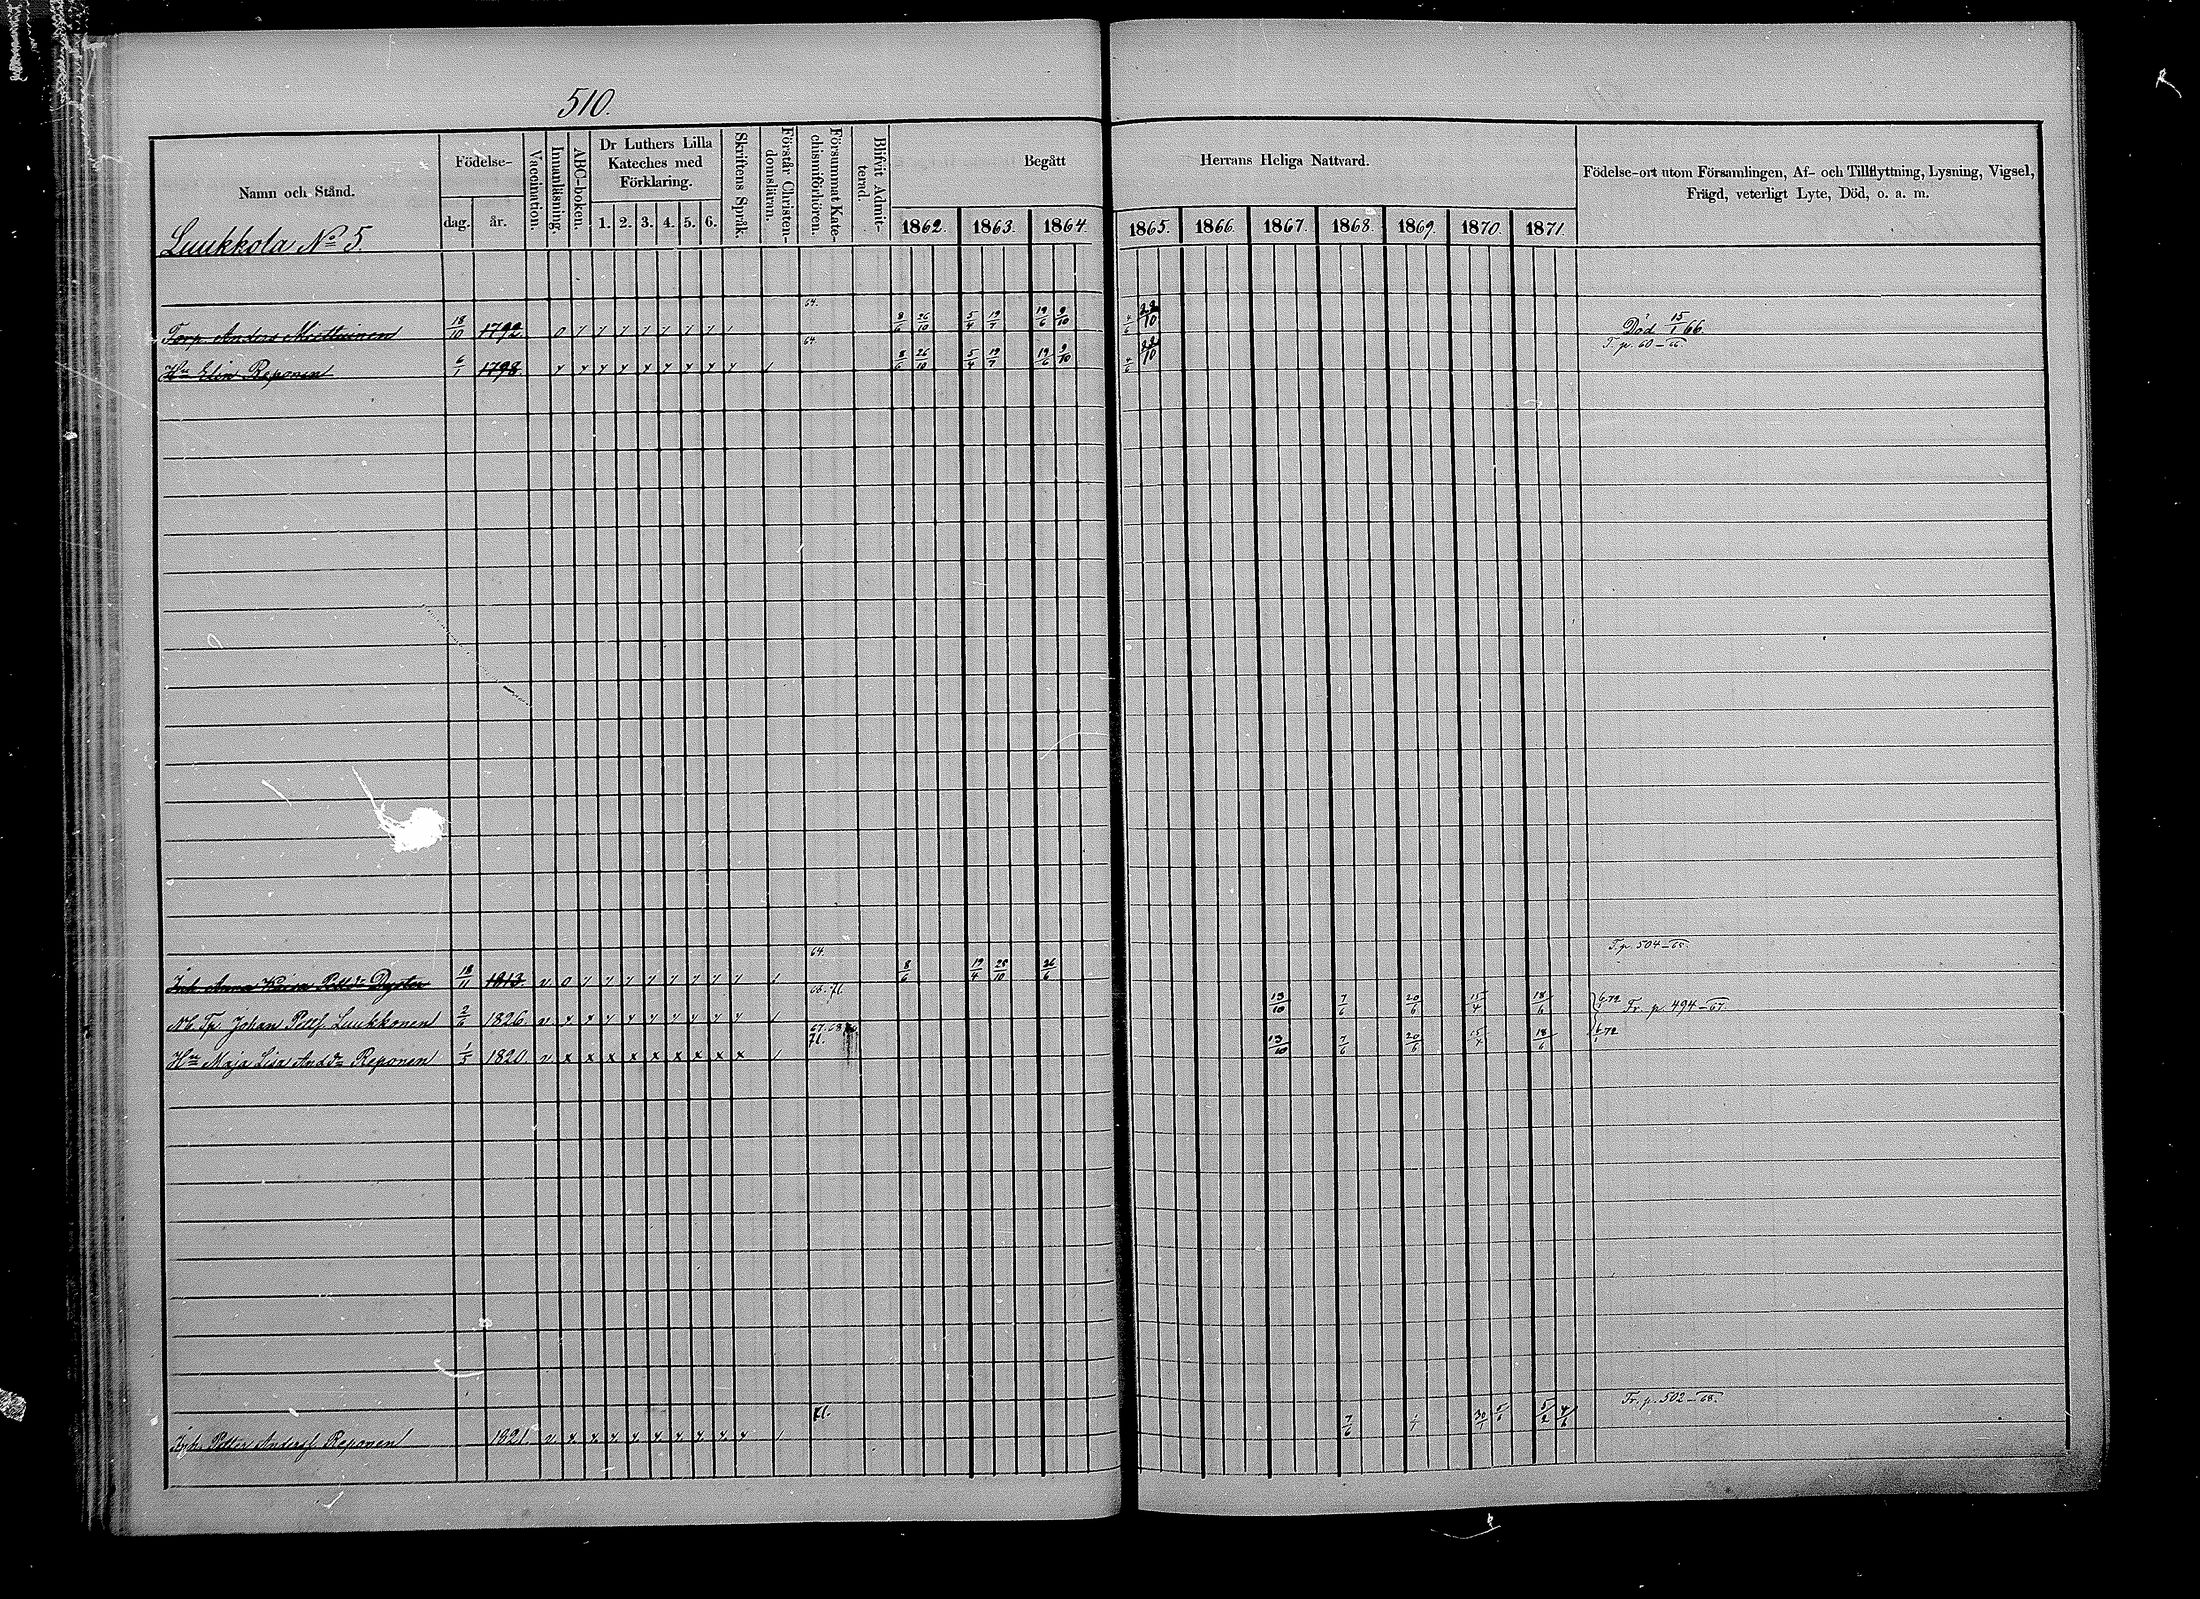 510.
Namn och Stånd.
Födelse-
dag. år.
Vaccination.
Innanläsning.
ABC-boken.
Dr Luthers Lilla
Kateches med
Förklaring.
1. 2. 3. 4. 5. 6.
Skriftens Språk.
Förstår Christen-
domsläran.
Försummat Kate-
chismiförhören.
Blifvit Admit-
terad.
Begått Herrans Heliga Nattvard.
1862. 1863. 1864. 1865. 1866. 1867. 1868. 1869. 1870. 1871.
Födelse-ort utom Församlingen, Af- och Tillflyttning, Lysning, Vigsel,
Frägd, veterligt Lyte, Död, o. a. m.
Luukkola No 5.
Torp. Anders Miettinen 18/10 1792. 64. 8/6 26/10 5/4 19/7 19/6 9/10 4/6 Död 15/1 66.
Hu Elin Reponen 6/1 1798. 64 8/6 26/10 5/4 19/7 19/6 9/10 4/6 T. p. 60-66
Inh. Anna Kaisa Pettdr Dyster 18/11 1813. 64. 8/6 19/4 28/10 26/6 T. p. 504-65
Nb. Tp. Johan Pettf. Luukkonen 2/6 1826. 66. 71. 13/10 7/6 20/6 15/4 18/6 Fr. p. 494-67.
Hu Maja Lisa Andsdr Reponen 1/5 1820. 67. 68 71. 13/10 7/6 20/6 15/4 18/6
Inh. Petter Andersf. Reponen 1821. 71. 7/6 30/1 5/6 5/2 4/6 Fr. p. 502-68.